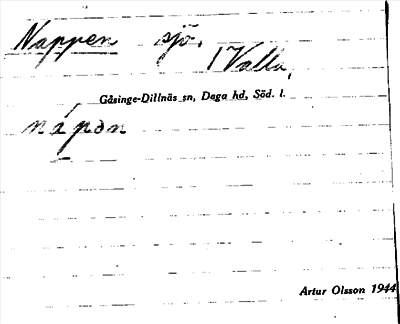 Nappen sjö.
1 Valla,
Gåsinge-Dillnäs sn, Daga hd, Söd. l.
nápən
Artur Olsson 1944